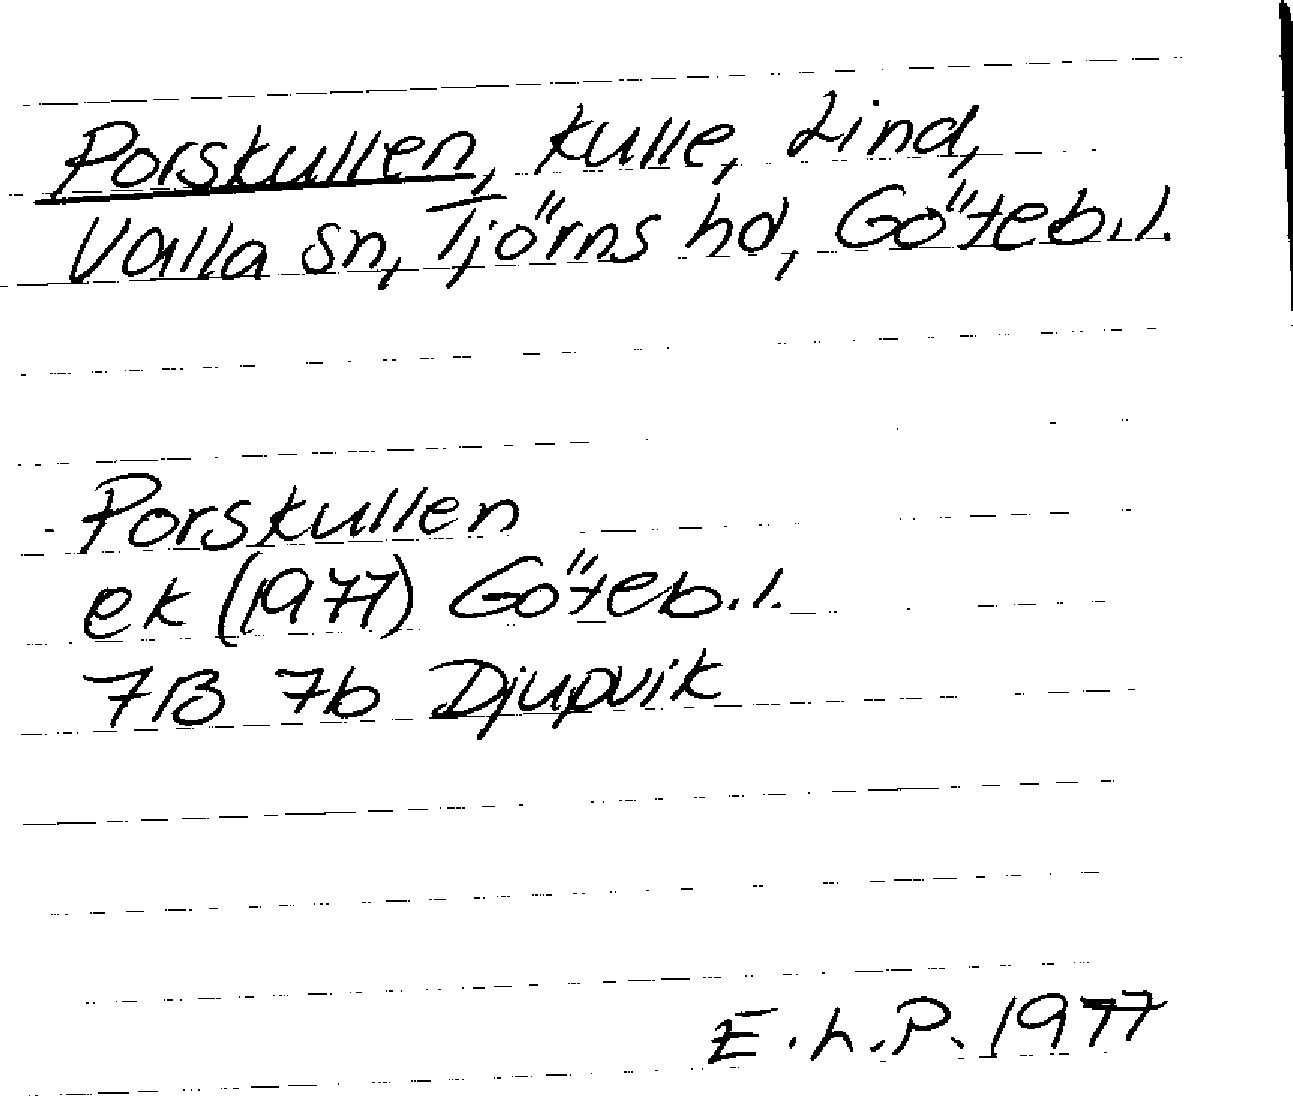 Porskullen, kulle, Lind,
Valla sn, Tjörns hd, Göteb.l.
Porskullen
ek (1977) Göteb.l.
7B 7b Djupvik
E.L.P. 1977